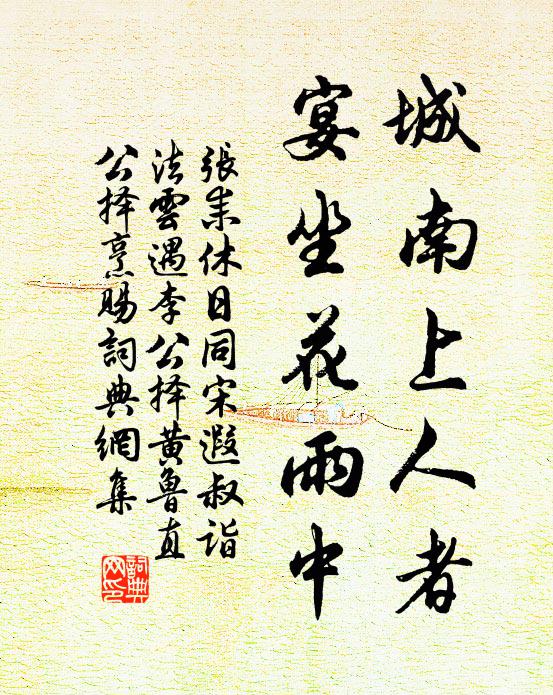 城南上人者
宴坐花雨中
張耒休日同宋遐叔詣
法雲遇李公择黄魯直
公择烹赐詞典網集
詞典
网印